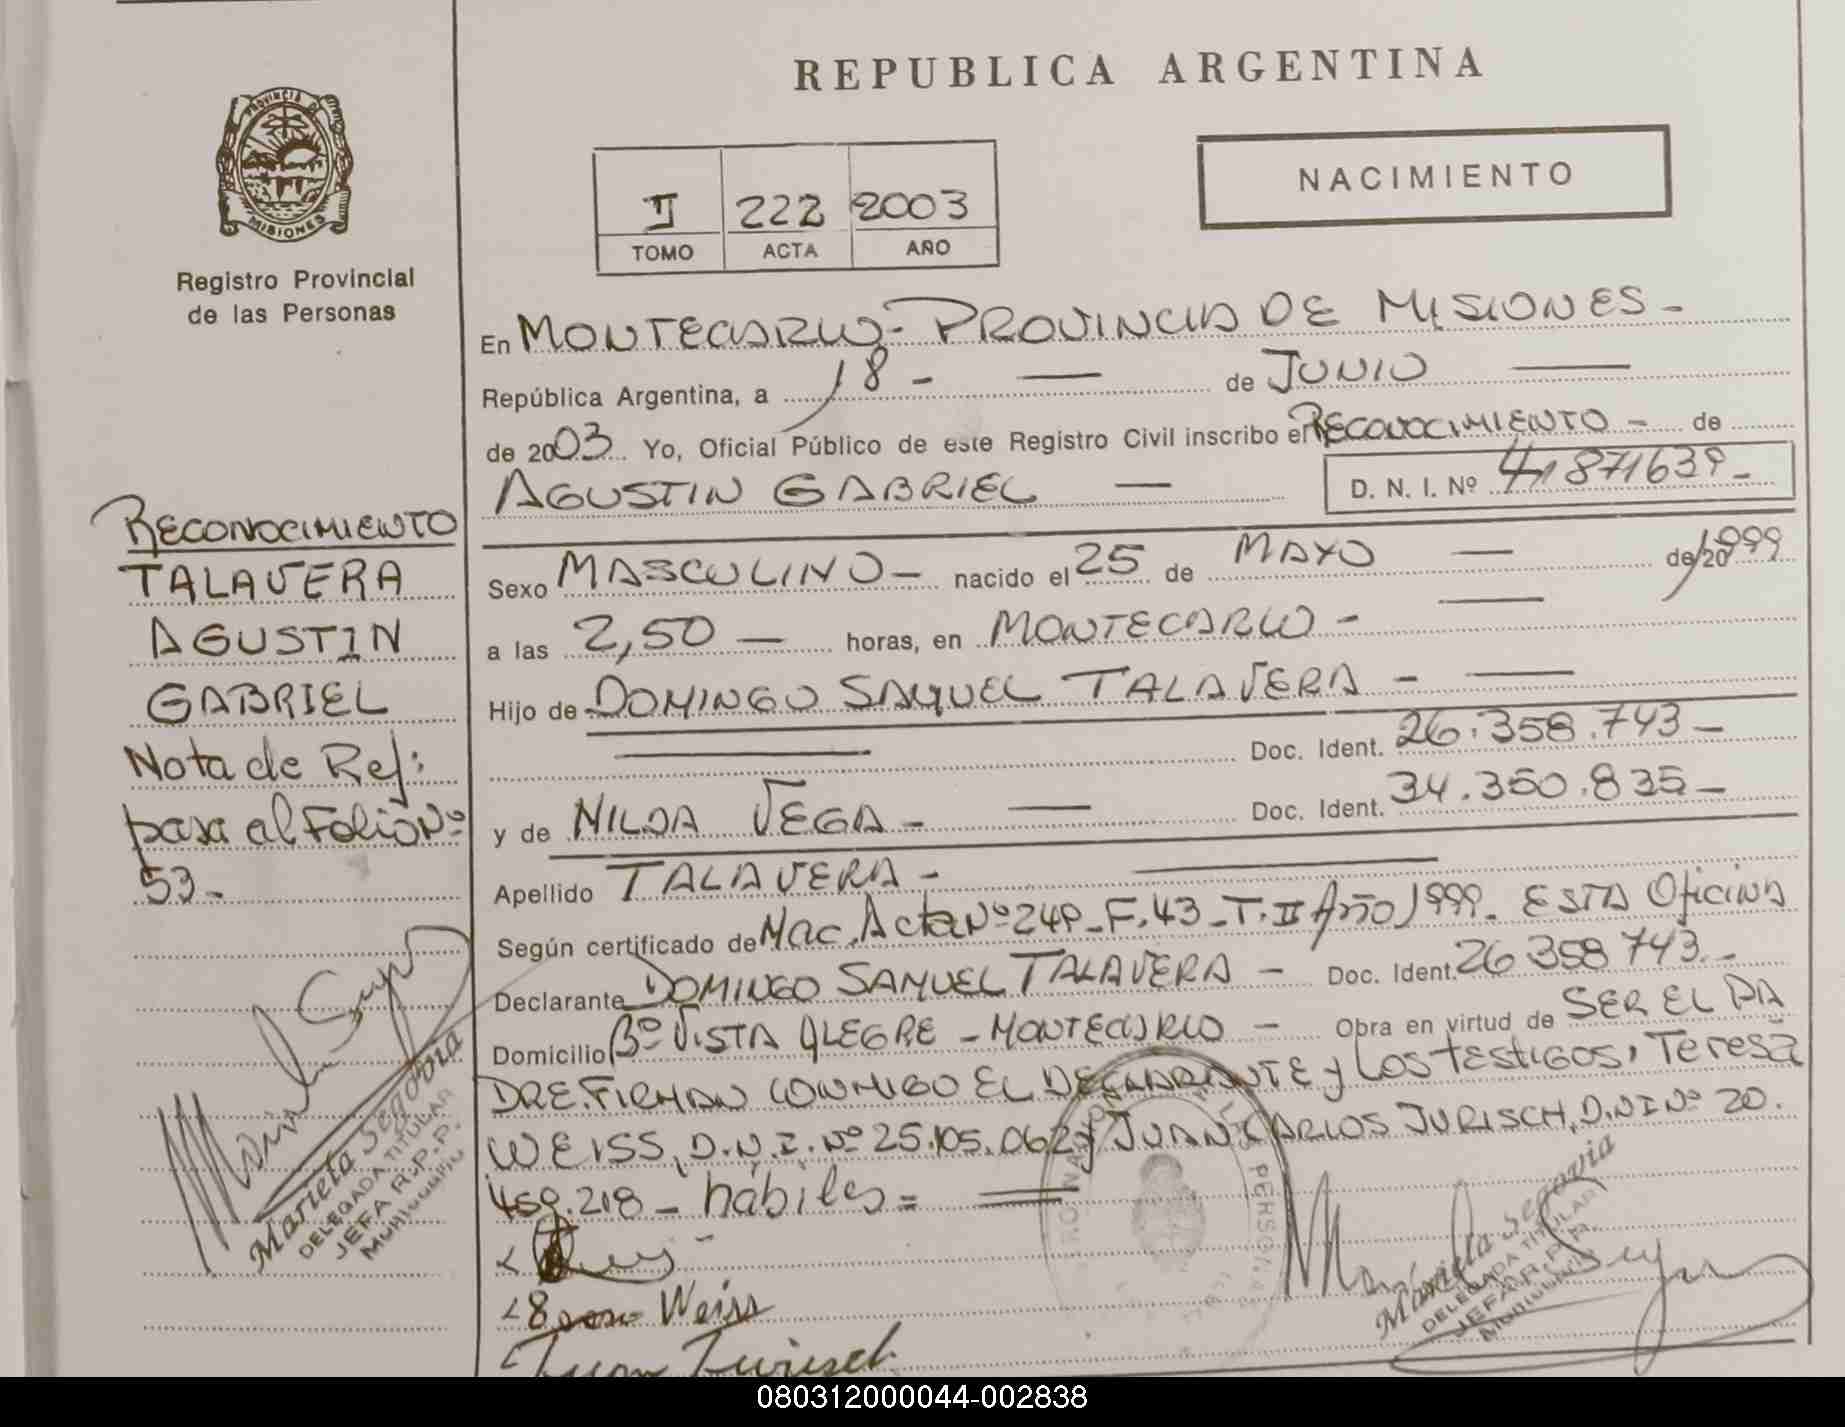 REPUBLICA ARGENTINA
PROVINCIA DE
MISIONES
Registro Provincial
de las Personas
NACIMIENTO
II 222 2003
TOMO ACTA AÑO
En MONTECARLO - PROVINCIA DE MISIONES -
República Argentina, a 18 - — de JUNIO —
de 2003 Yo, Oficial Público de este Registro Civil inscribo el RECONOCIMIENTO - de
AGUSTIN GABRIEL — D. N. I. Nº 41871639 -
Sexo MASCULINO - nacido el 25 de MAYO — de 20 1999
a las 2,50 — horas, en MONTECARLO -
Hijo de DOMINGO SAMUEL TALAVERA -
Doc. Ident. 26.358.743 -
y de NILDA VEGA - — Doc. Ident. 34.350.835 -
Apellido TALAVERA -
Según certificado de Nac. Acta Nº 249 - F. 43 - T. II Año 1999 - ESTA Oficina
Declarante DOMINGO SAMUEL TALAVERA - Doc. Ident. 26 358 743 -
Domicilio Bº VISTA ALEGRE - MONTECARLO - Obra en virtud de SER EL PA
DRE. FIRMAN CONMIGO EL DECLARANTE y LOS TESTIGOS, Teresa
WEISS, D.N.I. Nº 25.105.062 y JUAN CARLOS JURISCH, D.N.I Nº 20.
459.218 - hábiles =
Weiss
Juan Jurisch
RECONOCIMIENTO
TALAVERA
AGUSTIN
GABRIEL
Nota de Ref:
pasa al Folio Nº
53 -
Mariela Segovia
DELEGADA TITULAR
JEFA R.P.P.
Mariela Segovia
DELEGADA TITULAR
JEFA R.P.P.
080312000044-002838